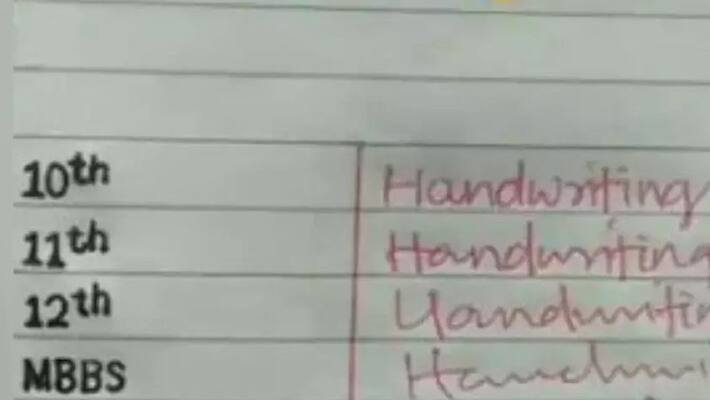 10th Handwriting
11th Handwriting
12th Handwriti
MBBS